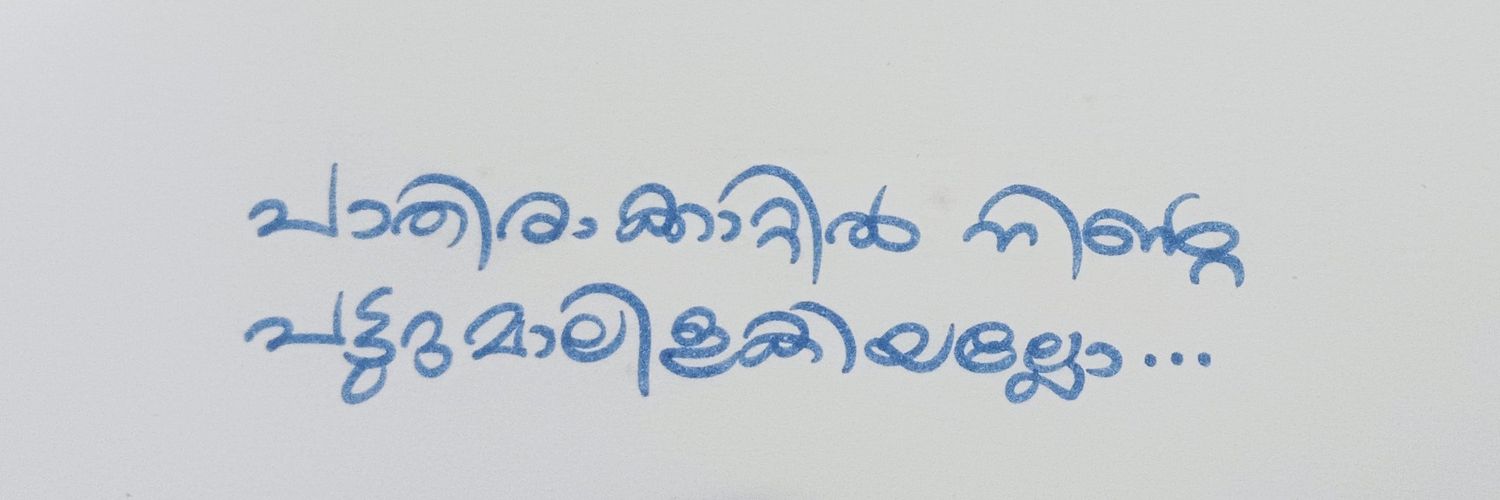 പാതിരാക്കാറ്റിൽ നിന്റെ
പട്ടുറുമാലിളകിയല്ലോ...